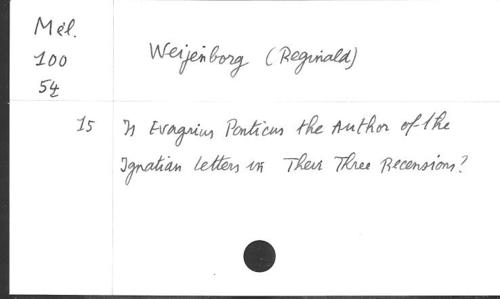 Mél.
100
54
Weijenborg (Reginald)
15 Is Evagrius Ponticus the Author of the
Ignatian Letters in Their Three Recensions?